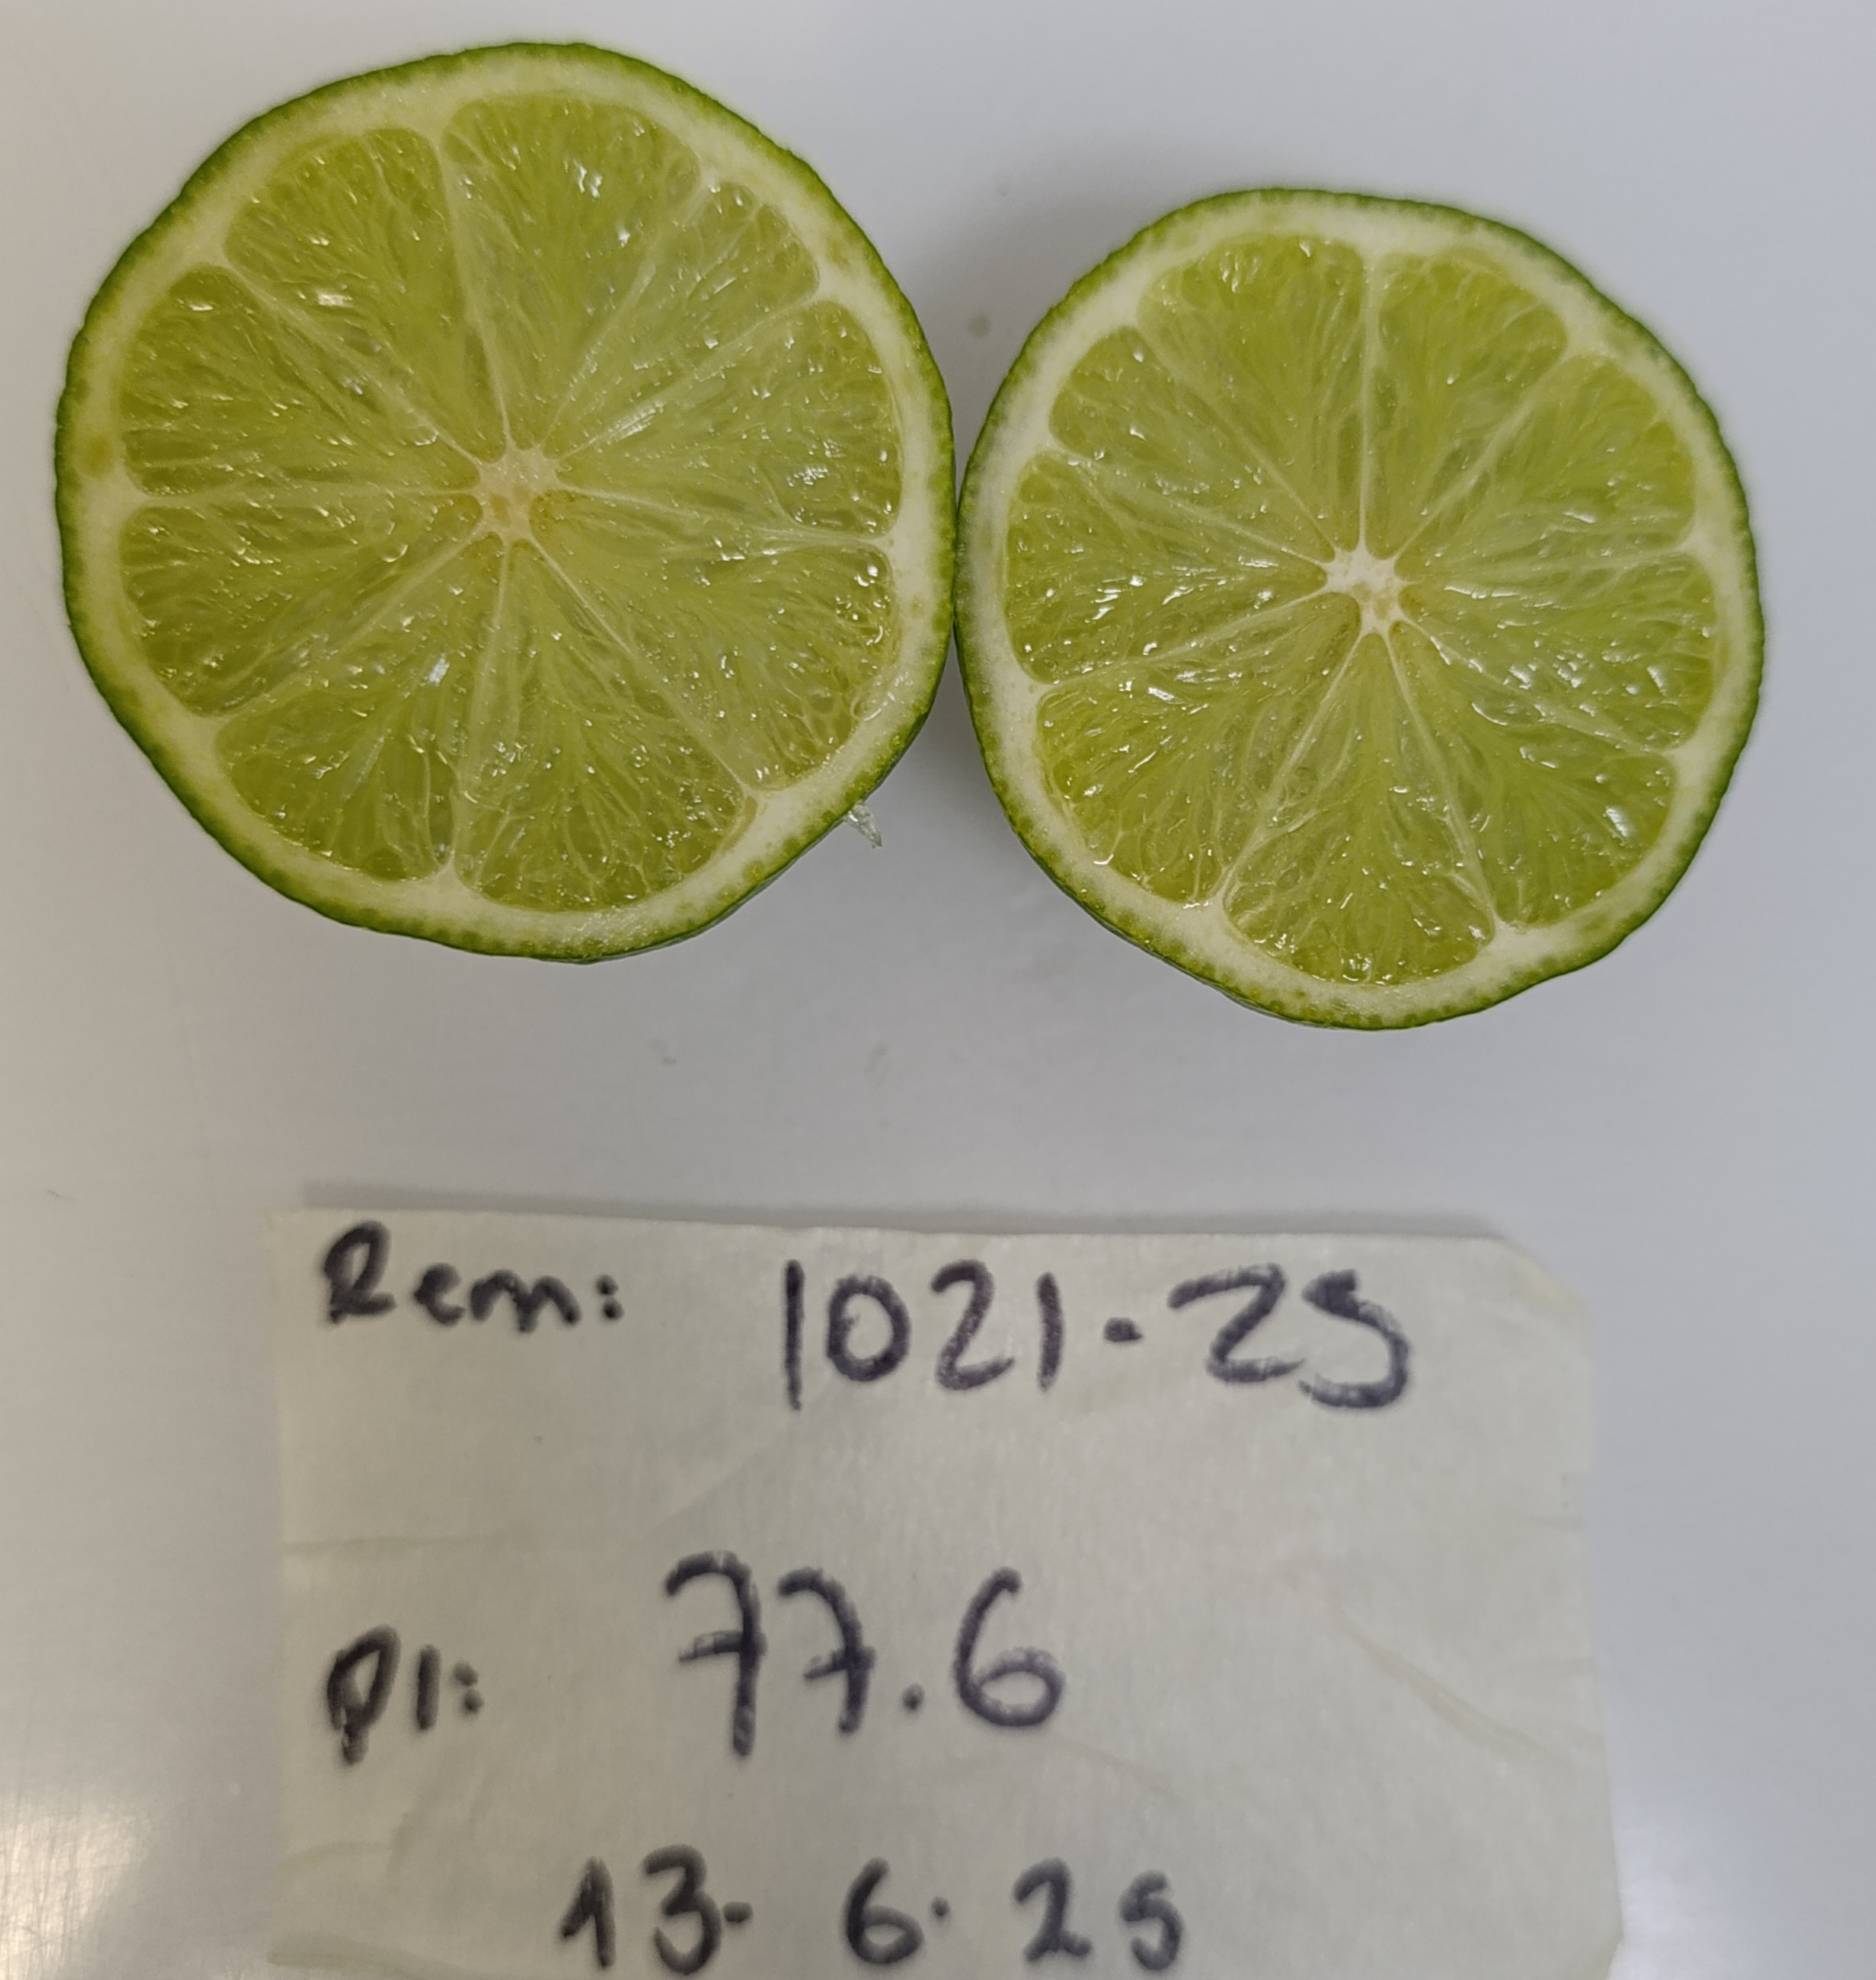 Rem: 1021-25
Pl: 77.6
13. 6. 25